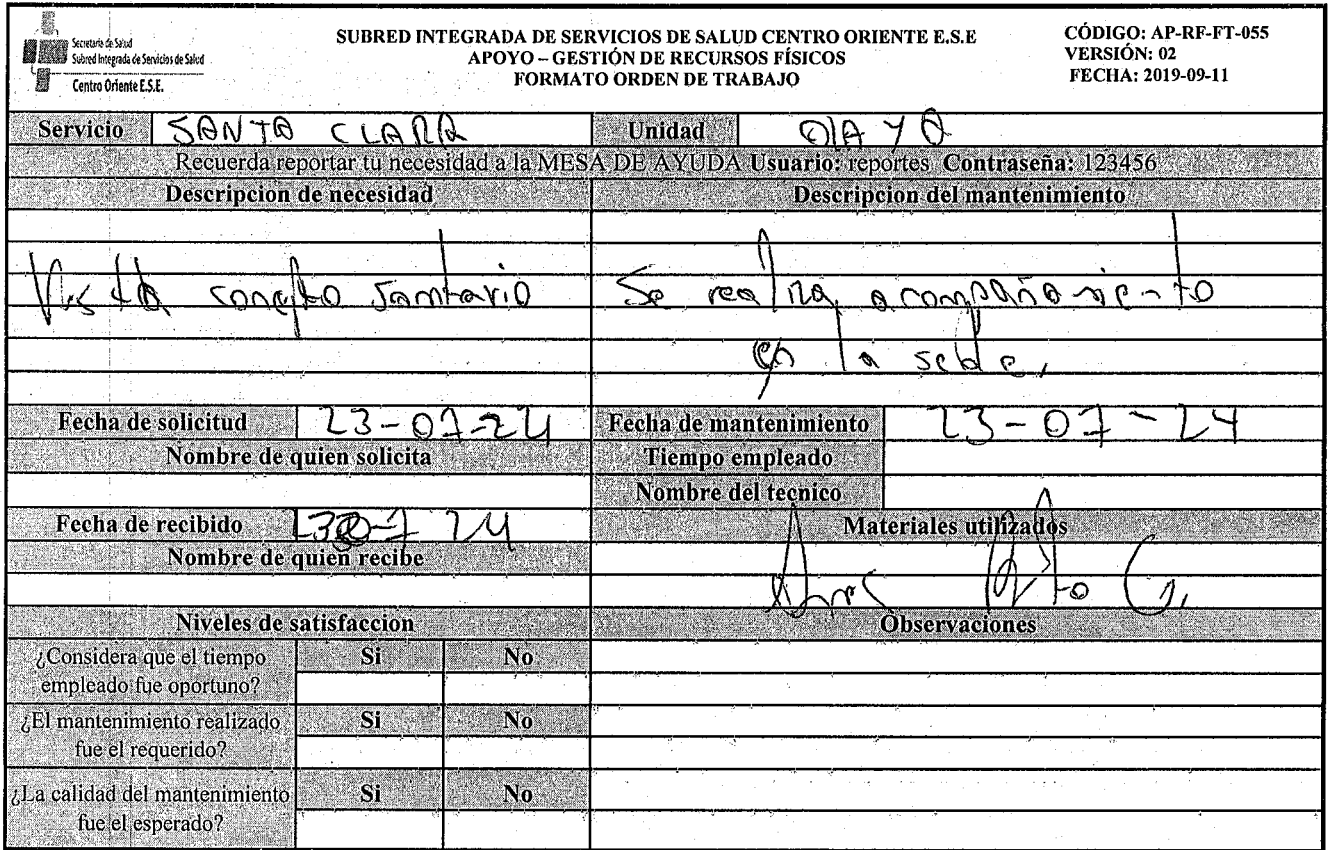 Secretaría de Salud
Subred Integrada de Servicios de Salud
Centro Oriente E.S.E.
SUBRED INTEGRADA DE SERVICIOS DE SALUD CENTRO ORIENTE E.S.E
APOYO – GESTIÓN DE RECURSOS FÍSICOS
FORMATO ORDEN DE TRABAJO
CÓDIGO: AP-RF-FT-055
VERSIÓN: 02
FECHA: 2019-09-11
Servicio SANTA CLARA Unidad OLAYA
Recuerda reportar tu necesidad a la MESA DE AYUDA Usuario: reportes Contraseña: 123456
Descripcion de necesidad Descripcion del mantenimiento
Visita concepto Sanitario Se realiza acompañamiento
en la sede,
Fecha de solicitud 23-07-24 Fecha de mantenimiento 23-07-24
Nombre de quien solicita Tiempo empleado
Nombre del tecnico
Fecha de recibido 24 Materiales utilizados
Nombre de quien recibe
Niveles de satisfaccion Observaciones
¿Considera que el tiempo empleado fue oportuno? Si No
¿El mantenimiento realizado fue el requerido? Si No
¿La calidad del mantenimiento fue el esperado? Si No